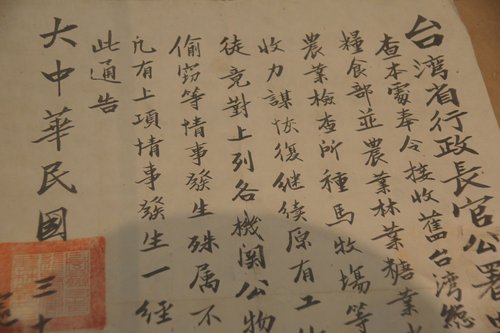 台湾省行政長官公署
查本處奉令接收舊台湾總
糧食部並農業林業糖業
農業檢查所種馬牧場等
收力謀恢復继续原有工
徒竟對上列各機関公物
偷窃等情事發生殊属不
凡有上項情事發生一經
此通告
大中華民國三十